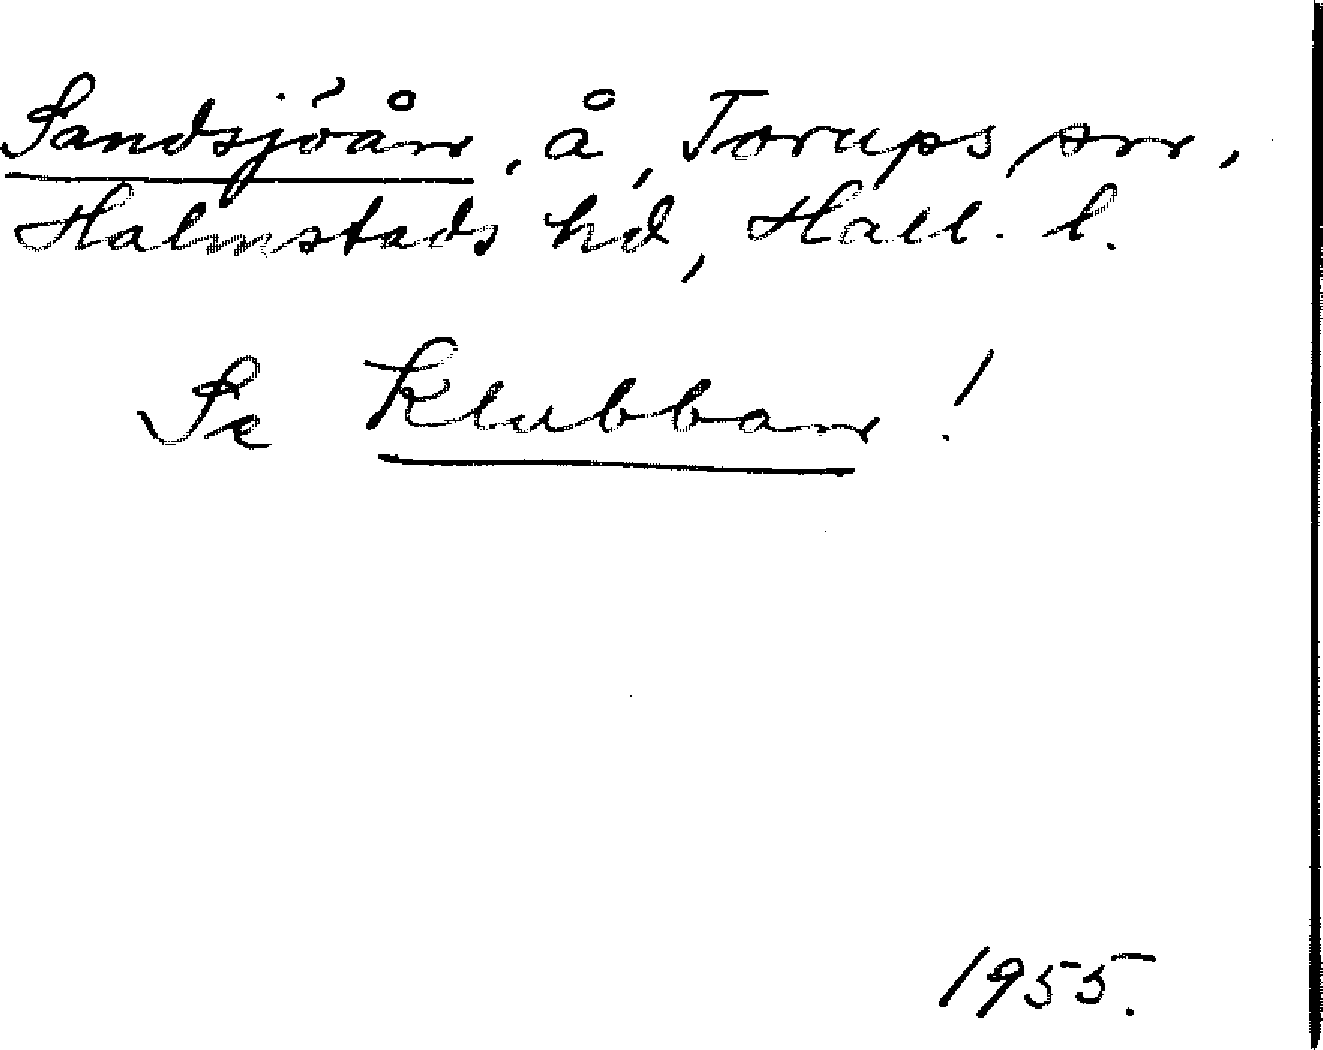 Sandsjöån, å, Torups sn,
Halmstads hd, Hall. l.
Se Klubban!
1955.